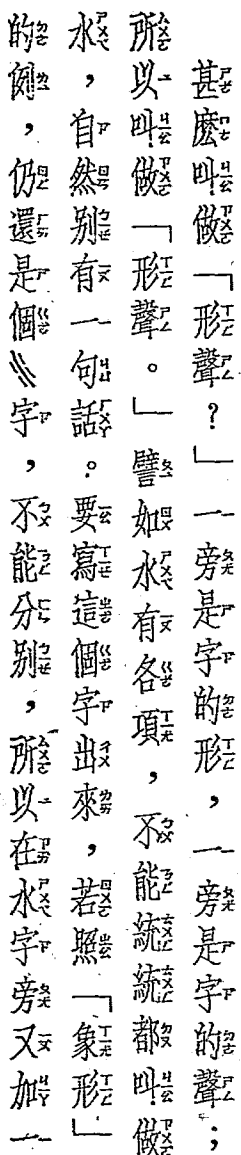 甚麽叫做「形聲?」一旁是字的形,一旁是字的聲;
所以叫做「形聲。」譬如水有各項,不能統統都叫做
水,自然别有一句話。要寫這個字出來,若照「象形」
的例,仍還是個〣字,不能分别,所以在水字旁又加一